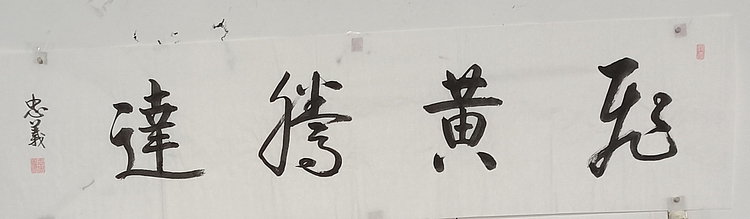 飛黄騰達
忠義